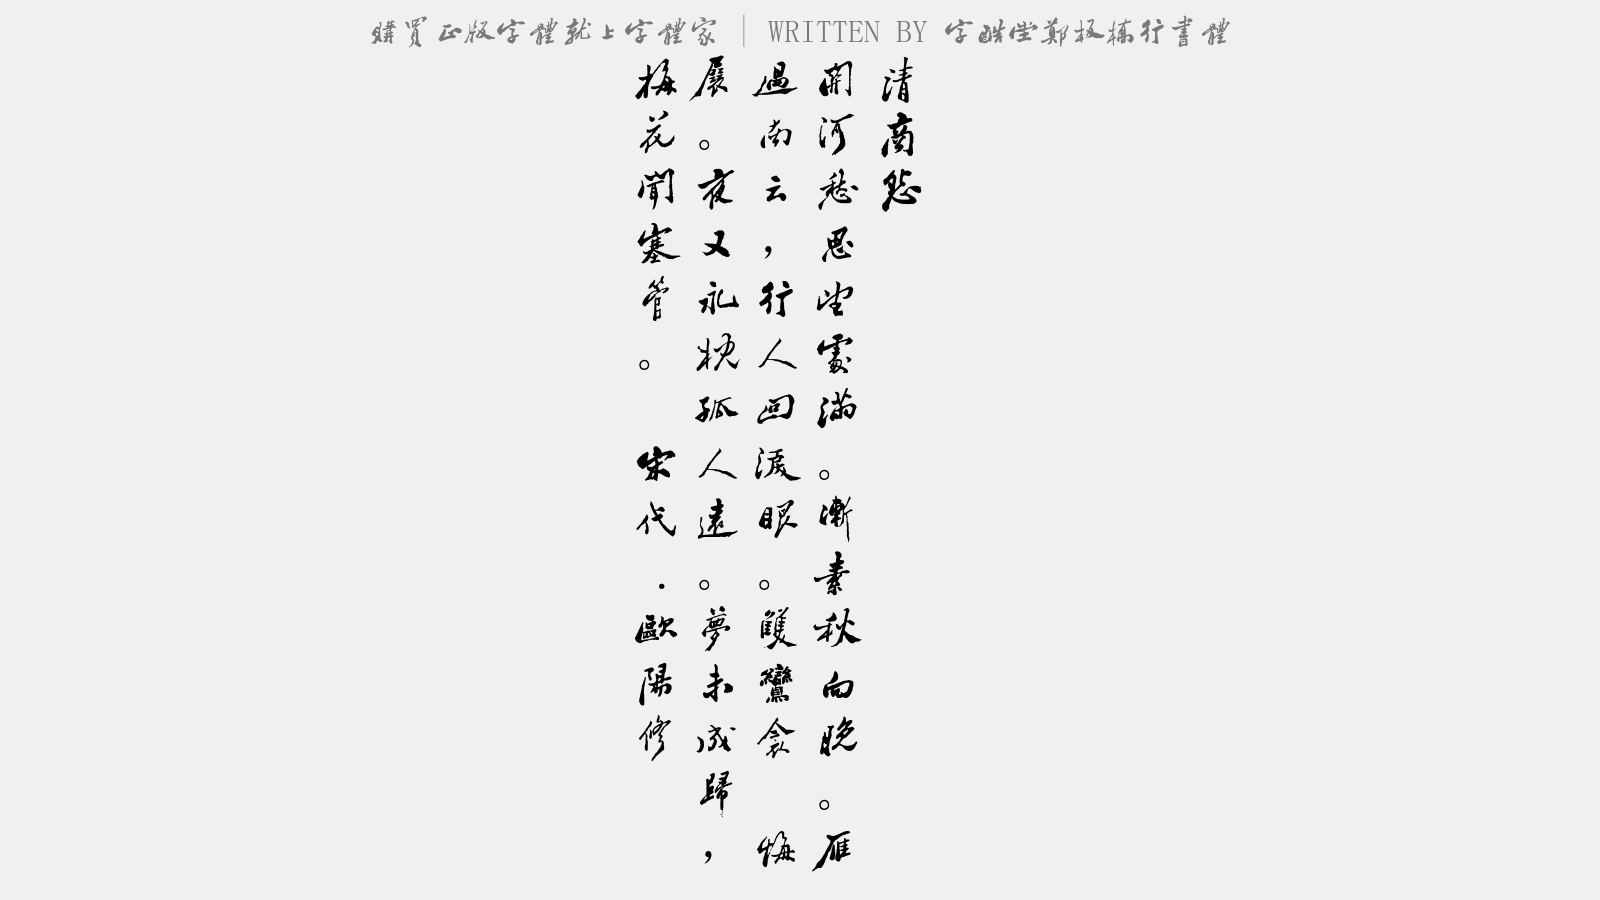 購買正版字體就上字體家 | WRITTEN BY 字酷堂鄭板橋行書體
清商怨
開河愁思望處滿。漸素秋向晚。雁
過南云，行人回淚眼。雙鸞衾 悔
展。夜又永枕孤人遠。夢未成歸，
梅花聞塞管。 宋代.歐陽修